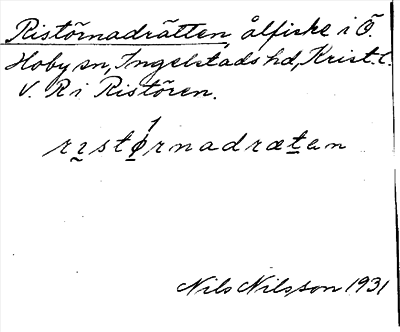 Ristörnadrätten, ålfiske i Ö.
Hoby sn, Ingelstads hd, Krist. l.
V. R i Ristören.
rɪstǿrnadrætan
Nils Nilsson 1931